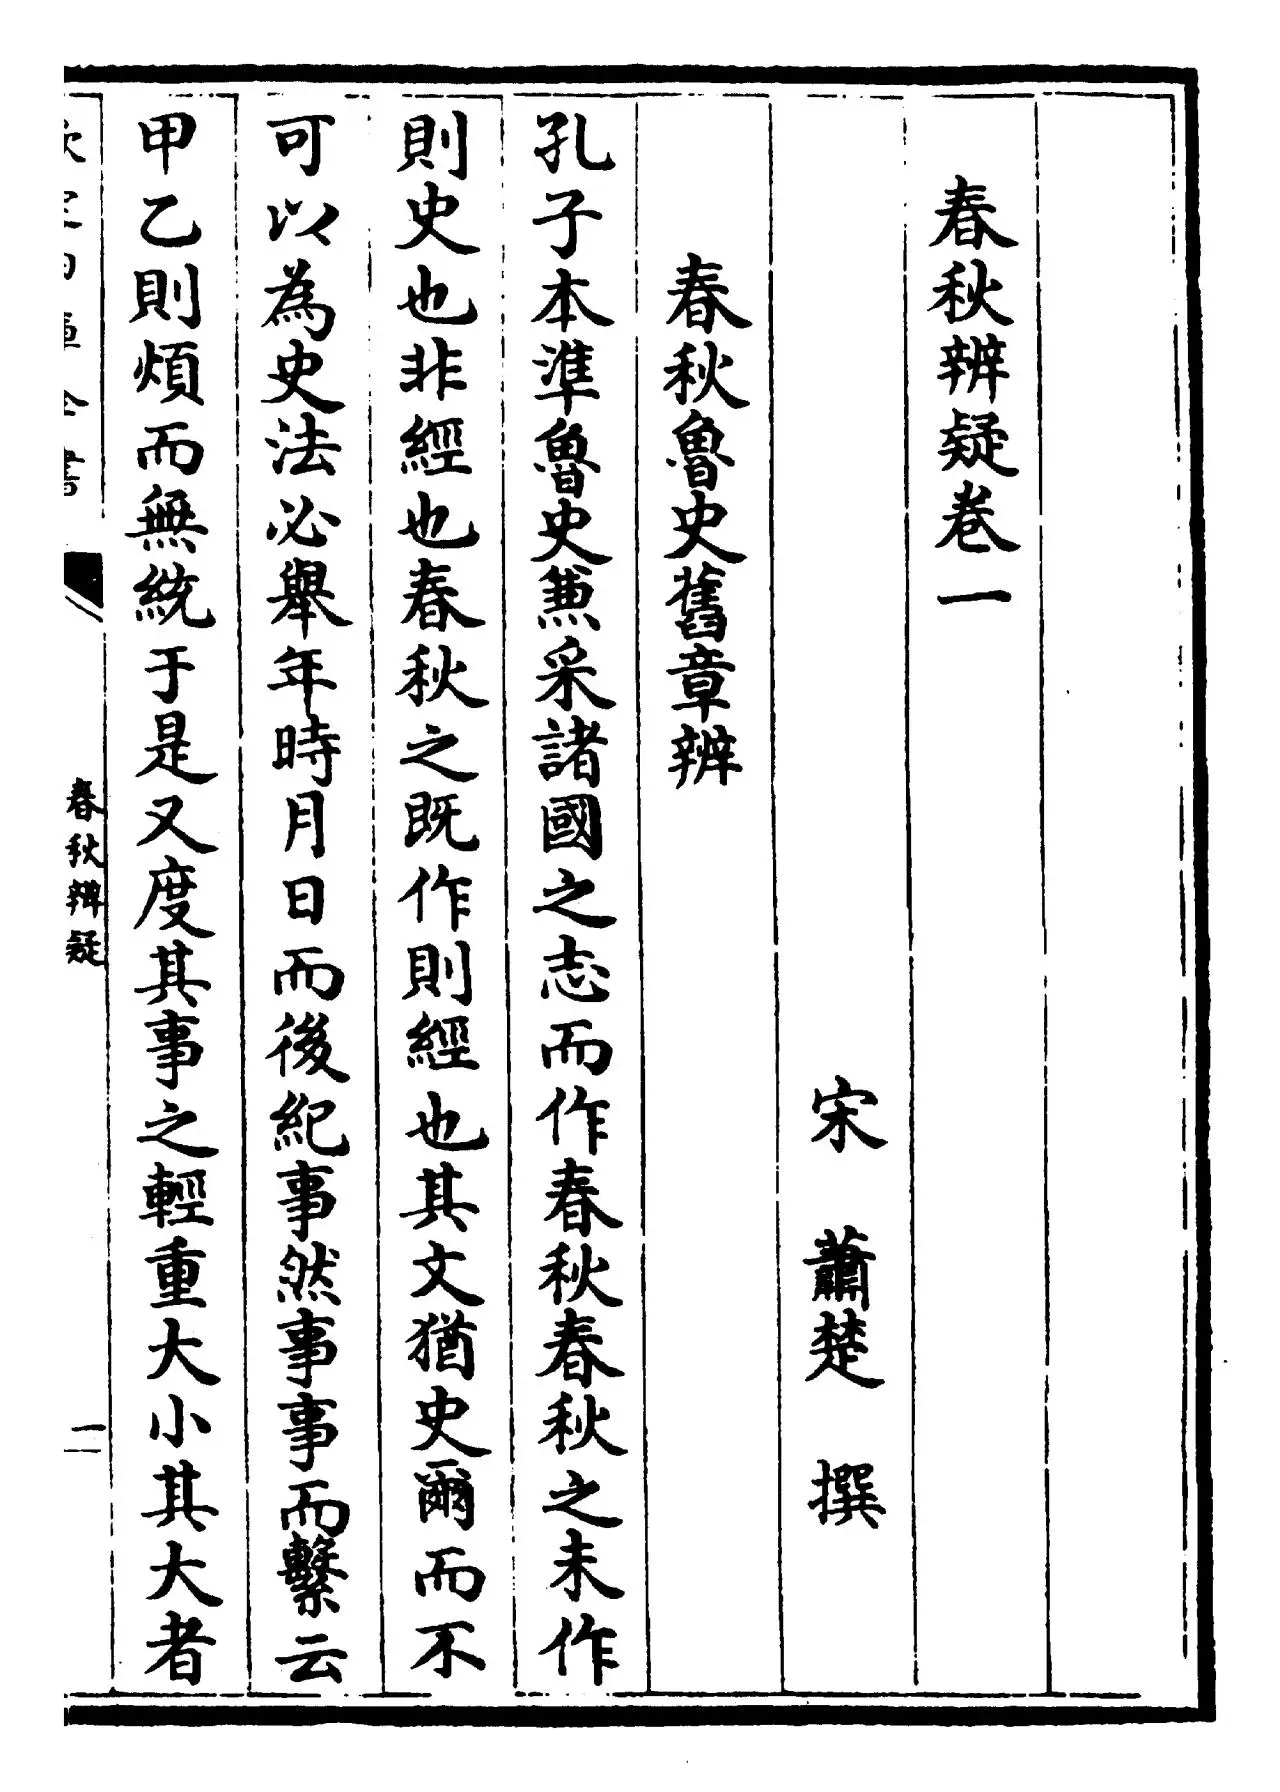 春秋辨疑卷一
宋　蕭楚　撰
春秋魯史舊章辨
孔子本準魯史兼采諸國之志而作春秋春秋之未作
則史也非經也春秋之既作則經也其文猶史爾而不
可以為史法必舉年時月日而後紀事然事事而繫云
甲乙則煩而無統于是又度其事之輕重大小其大者
春秋辨疑
一